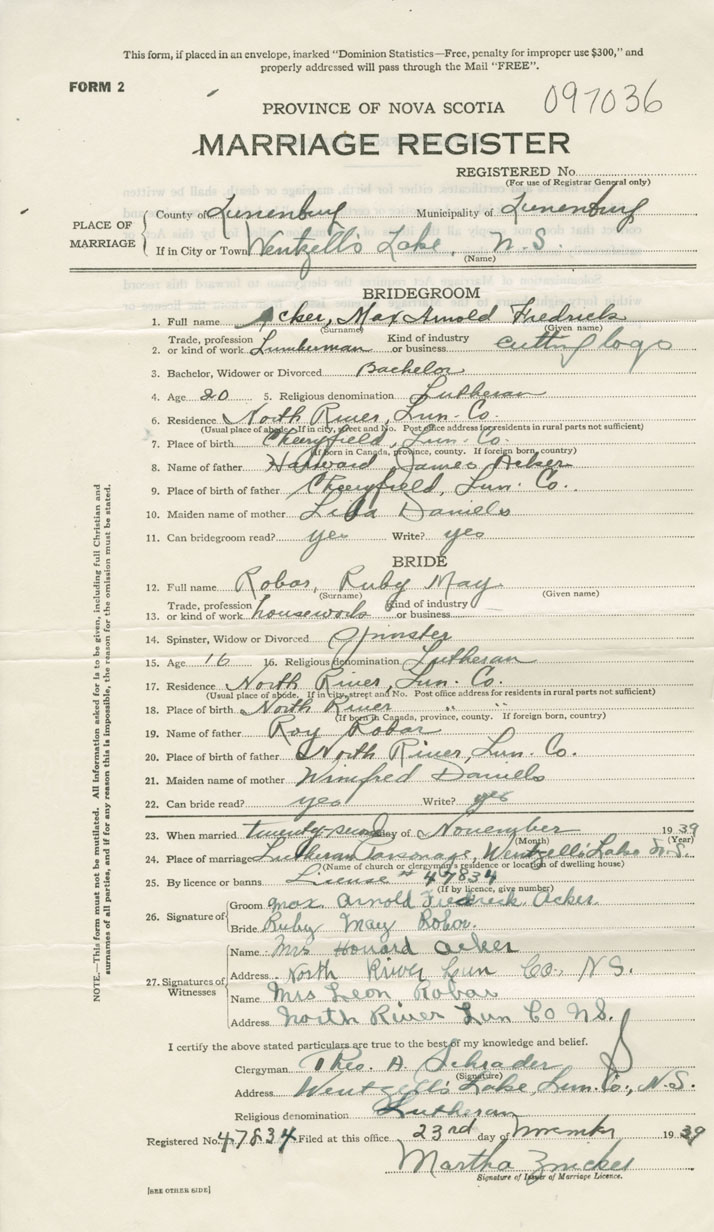 This form, if placed in an envelope, marked "Dominion Statistics—Free, penalty for improper use $300," and
properly addressed will pass through the Mail "FREE".
FORM 2
PROVINCE OF NOVA SCOTIA 097036
MARRIAGE REGISTER
REGISTERED No.
(For use of Registrar General only)
PLACE OF MARRIAGE
County of Lunenburg Municipality of Lunenburg
If in City or Town Wentzells Lake, N.S.
(Name)
BRIDEGROOM
1. Full name Acker, Max Arnold Fredrick
(Surname) (Given name)
2. Trade, profession or kind of work Lumberman Kind of industry or business cutting logs
3. Bachelor, Widower or Divorced Bachelor
4. Age 20 5. Religious denomination Lutheran
6. Residence North River, Lun. Co.
(Usual place of abode. If in city, street and No. Post office address for residents in rural parts not sufficient)
7. Place of birth Cherryfield, Lun. Co.
(If born in Canada, province, county. If foreign born, country)
8. Name of father Howard James Acker
9. Place of birth of father Cherryfield, Lun. Co.
10. Maiden name of mother Lida Daniels
11. Can bridegroom read? yes Write? yes
BRIDE
12. Full name Robar, Ruby May
(Surname) (Given name)
13. Trade, profession or kind of work housework Kind of industry or business
14. Spinster, Widow or Divorced Spinster
15. Age 16 16. Religious denomination Lutheran
17. Residence North River, Lun. Co.
(Usual place of abode. If in city, street and No. Post office address for residents in rural parts not sufficient)
18. Place of birth North River " "
(If born in Canada, province, county. If foreign born, country)
19. Name of father Roy Robar
20. Place of birth of father North River, Lun. Co.
21. Maiden name of mother Winifred Daniels
22. Can bride read? yes Write? yes
23. When married twenty-second day of November 1939
(Month) (Year)
24. Place of marriage Lutheran Parsonage, Wentzells Lake N.S.
(Name of church or clergyman's residence or location of dwelling house)
25. By licence or banns License # 47834
(If by licence, give number)
26. Signature of
Groom Max Arnold Fredrick Acker
Bride Ruby May Robar
27. Signatures of Witnesses
Name Mrs Howard Acker
Address North River Lun Co. N S.
Name Mrs Leon Robar
Address North River Lun Co N.S.
I certify the above stated particulars are true to the best of my knowledge and belief.
Clergyman Theo. A. Schrader
(Signature)
Address Wentzells Lake, Lun. Co., N.S.
Religious denomination Lutheran
Registered No. 47834 Filed at this office 23rd day of November 1939
Martha Zwicker
Signature of Issuer of Marriage Licence.
[SEE OTHER SIDE]
NOTE.—This form must not be mutilated. All information asked for is to be given, including full Christian and
surnames of all parties, and if for any reason this is impossible, the reason for the omission must be stated.